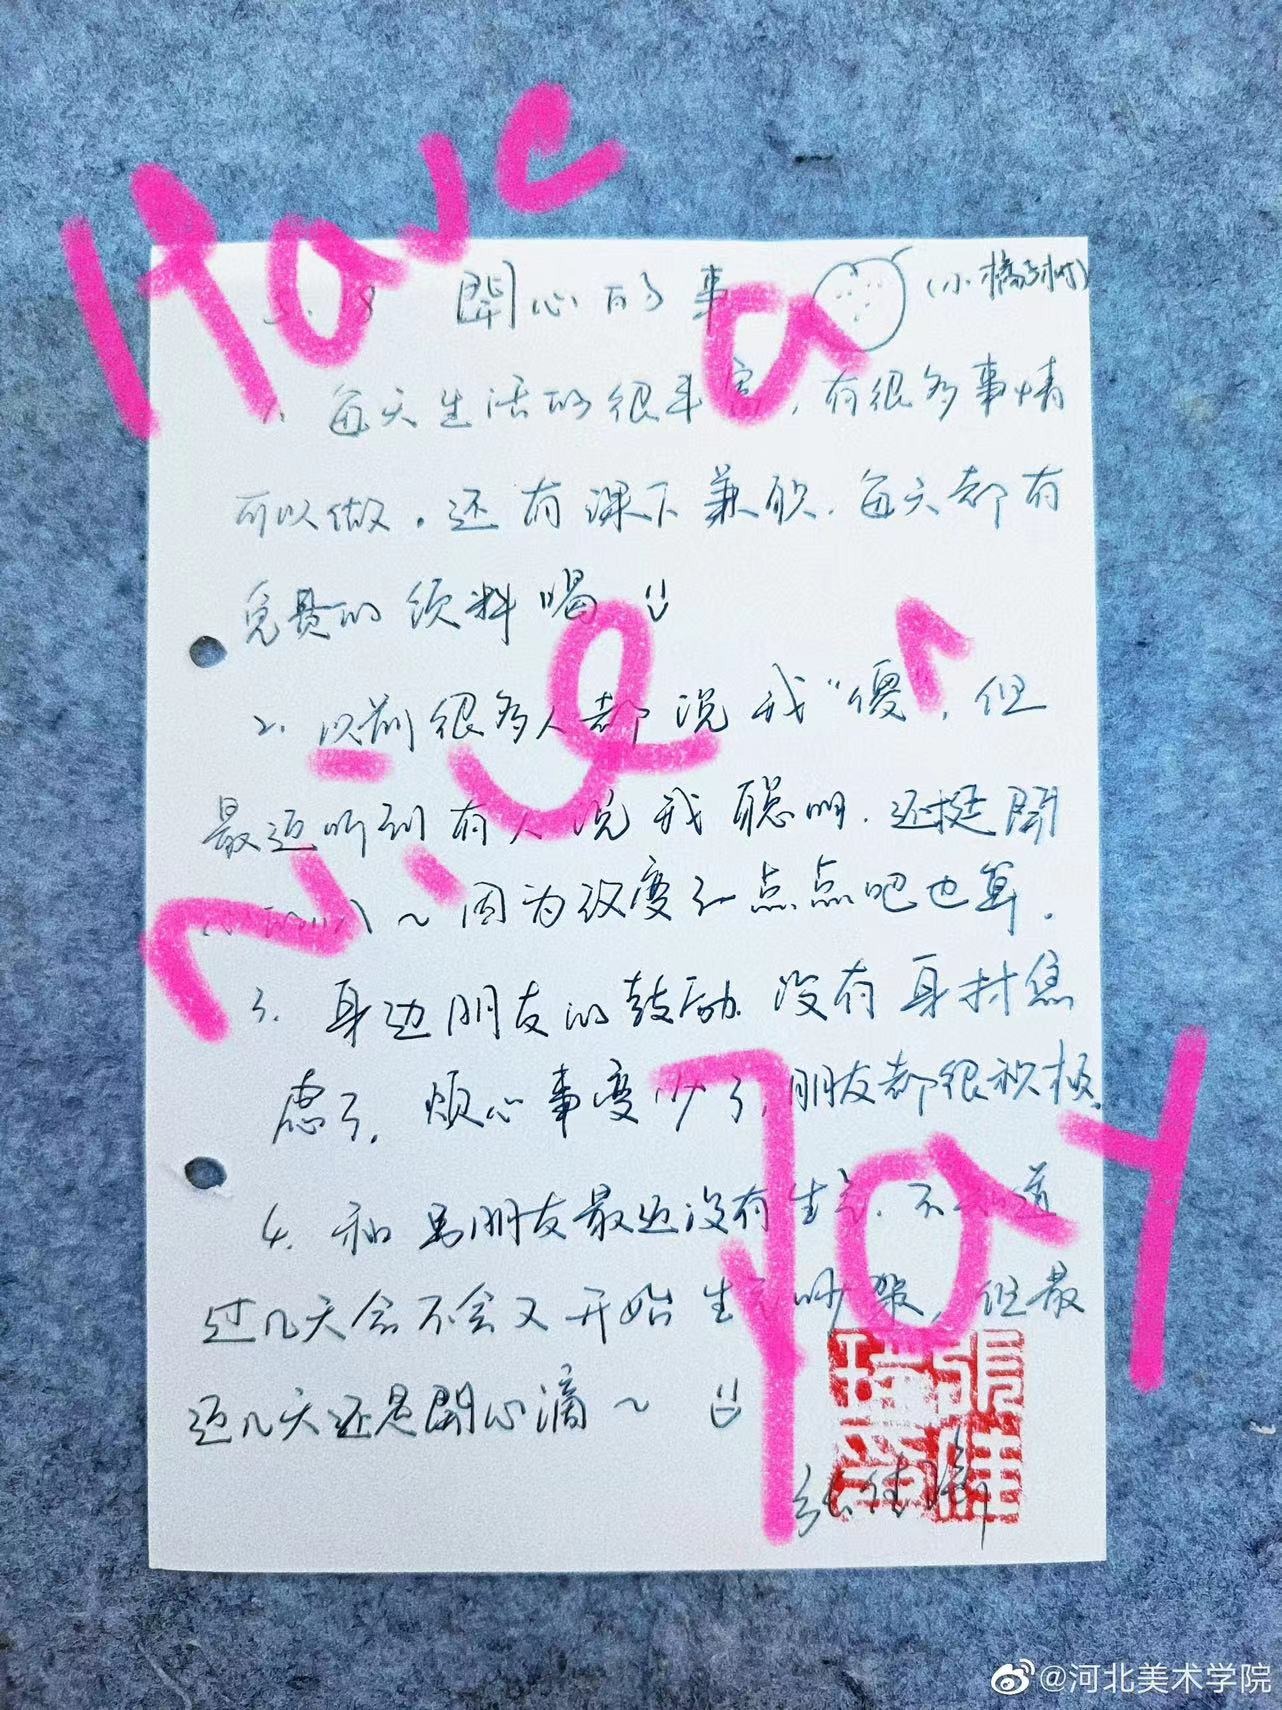 Have
a
Nice
Day
5.8 開心的事 (小橘子树)
1. 每天生活的很丰富，有很多事情
可以做。还有课下兼职，每天都有
免费的饮料喝
2. 以前很多人都说我“傻”，但
最近听到有人说我聪明，还挺開
～因为改变了一点点吧也算。
3. 身边朋友的鼓励，没有身材焦
虑了，烦心事变少了，朋友都很积极。
4. 和男朋友最近没有生气，不知道
过几天会不会又开始生气吵架，但最
近几天还是開心滴～
张佳
張佳
@河北美术学院